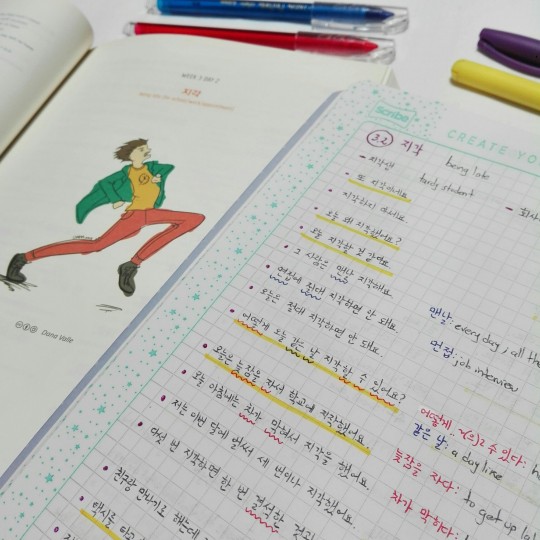 WEEK 3 DAY 2
지각
Dana Valle
Scribe
CREATE YO
3.2 지각 being late
지각생 tardy student
또 지각이네요.
지각하지 마세요.
오늘 왜 지각했어요?
오늘 지각할 것 같아요
그 사람은 맨날 지각해요.
면접에 절대 지각하면 안 돼요.
오늘은 절대 지각하면 안 돼요.
어떻게 오늘 같은 날 지각할 수 있어요?
오늘은 늦잠을 자서 학교에 지각했어요.
오늘 아침에는 차가 막혀서 지각을 했어요.
저는 이번 달에 벌써 세 번이나 지각했어요.
다섯 번 지각하면 한 번 결석한 것과
친구랑 만나기로 했는데
택시를 타고
회사
맨날: every day, all the
면접: job interview
어떻게 ~(으)ㄹ 수 있다: h
같은 날: a day like
늦잠을 자다: to get up la
차가 막히다: